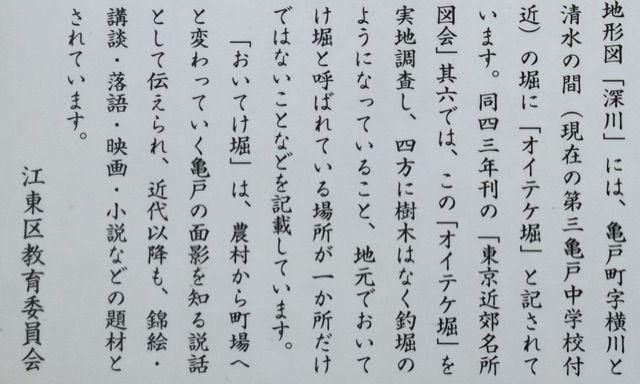 地形図「深川」には、亀戸町字横川と
清水の間（現在の第三亀戸中学校付
近）の堀に「オイテケ堀」と記されて
います。同四三年刊の「東京近郊名所
図会」其六では、この「オイテケ堀」を
実地調査し、四方に樹木はなく釣堀の
ようになっていること、地元でおいて
け堀と呼ばれている場所が一か所だけ
ではないことなどを記載しています。
「おいてけ堀」は、農村から町場へ
と変わっていく亀戸の面影を知る説話
として伝えられ、近代以降も、錦絵・
講談・落語・映画・小説などの題材と
されています。
江東区教育委員会